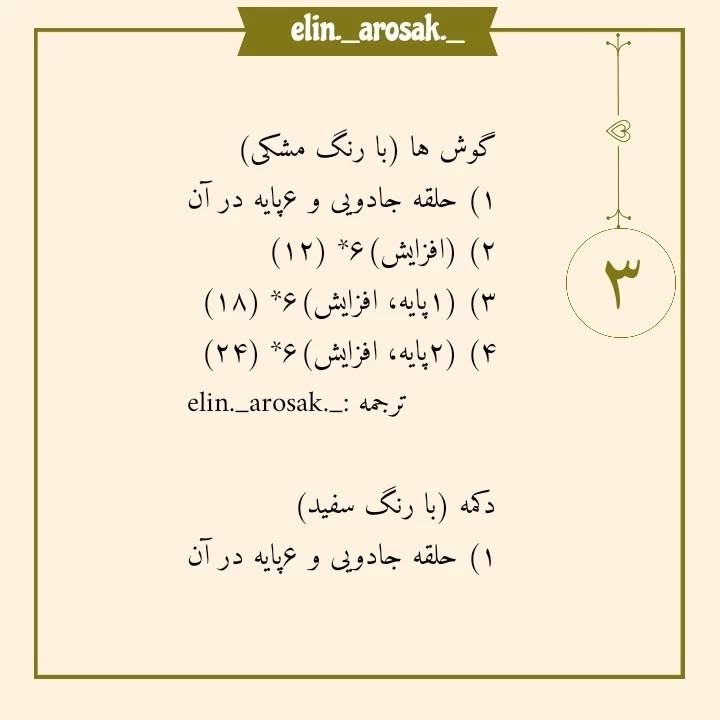 elin._arosak._
۳
گوش ها (با رنگ مشکی)
۱) حلقه جادویی و ۶پایه در آن
۲) (افزایش)۶* (۱۲)
۳) (۱پایه، افزایش)۶* (۱۸)
۴) (۲پایه، افزایش)۶* (۲۴)
ترجمه :_.elin._arosak
دکمه (با رنگ سفید)
۱) حلقه جادویی و ۶پایه در آن